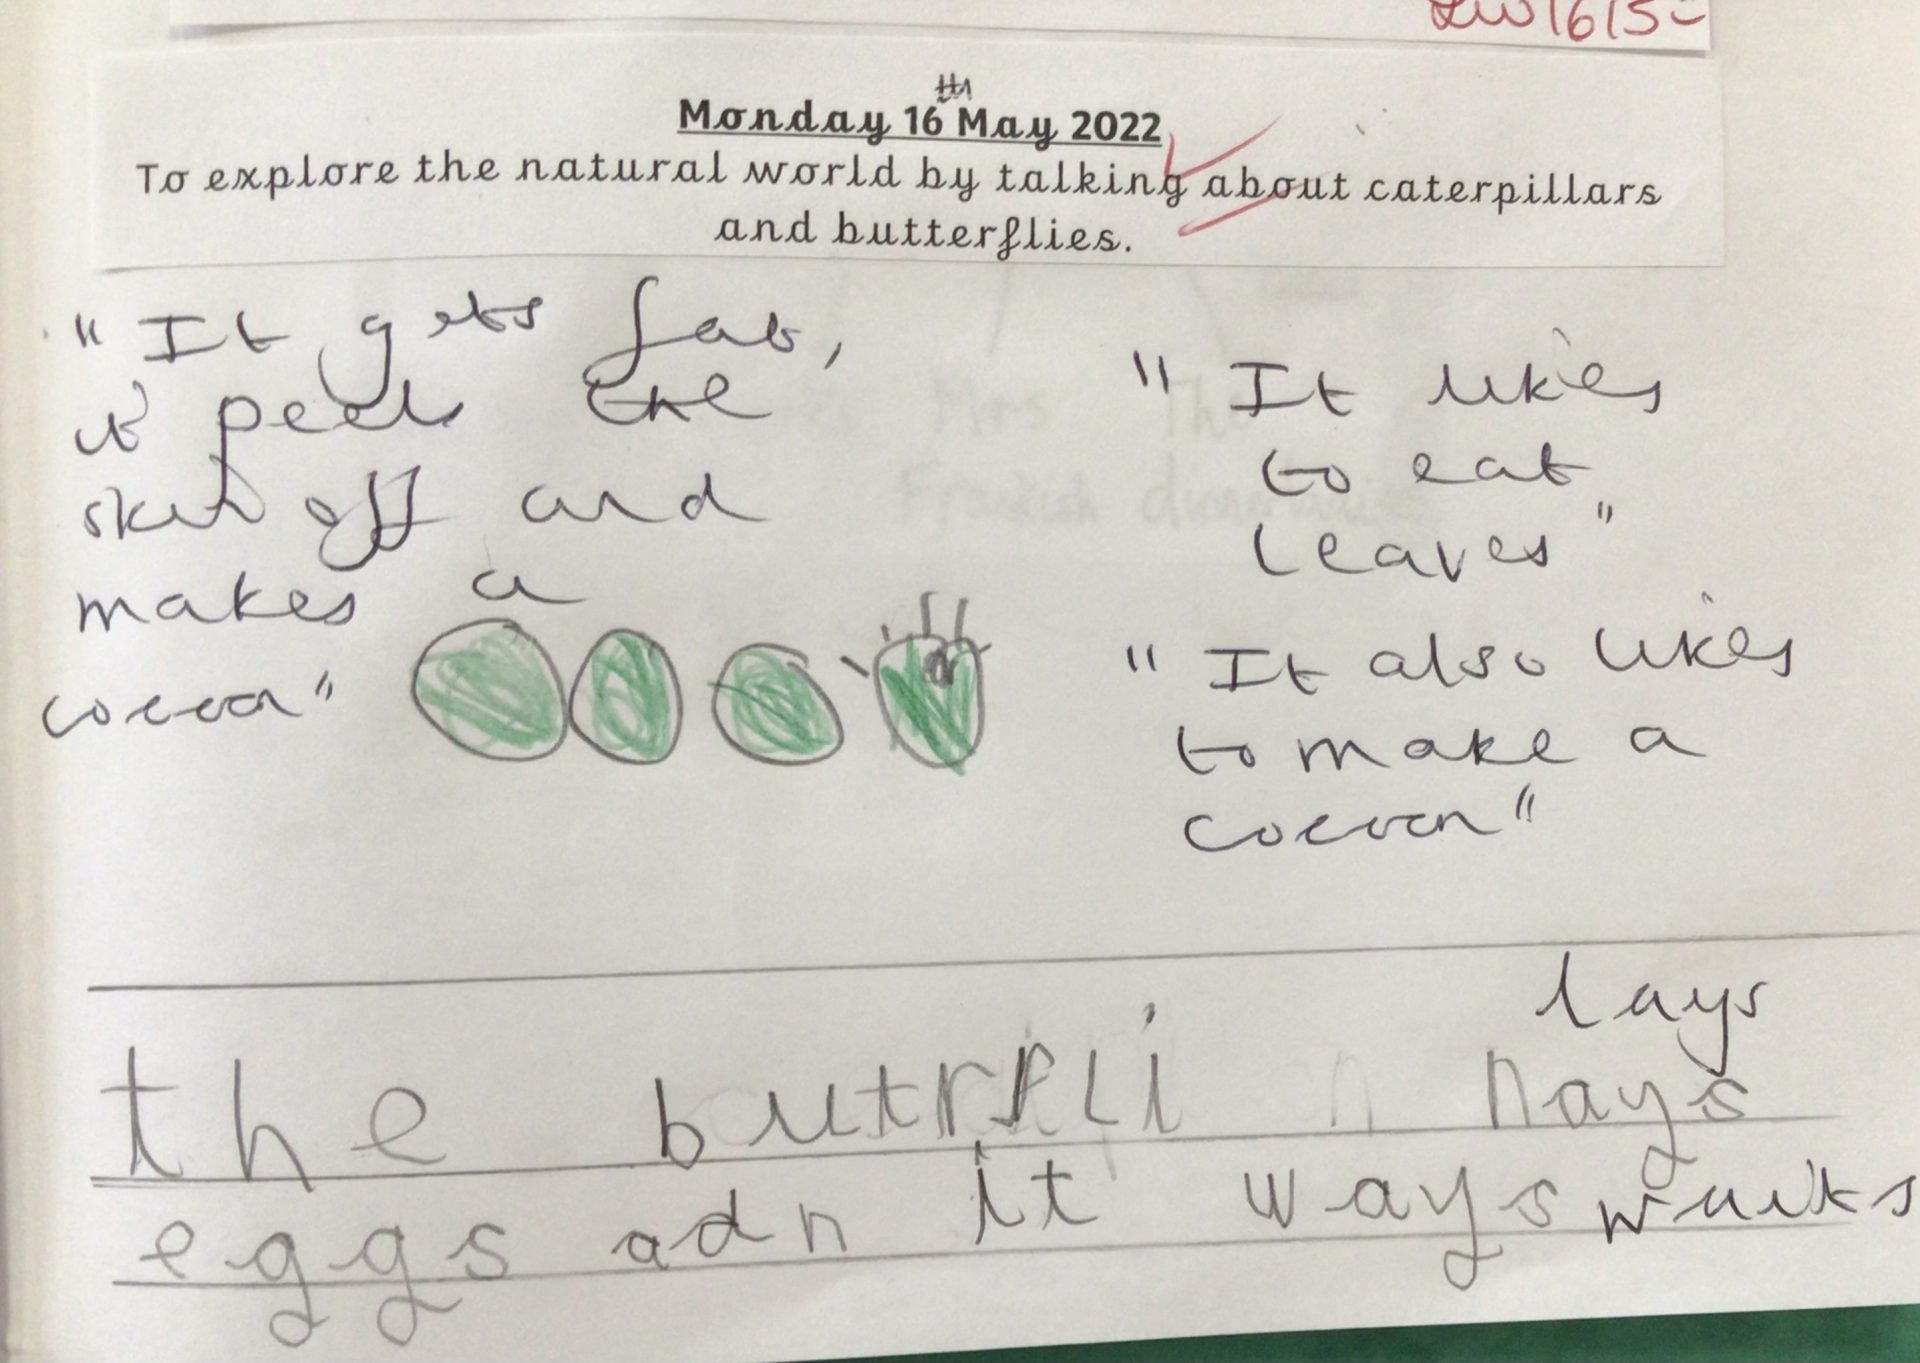 Monday 16th May 2022
To explore the natural world by talking about caterpillars
and butterflies.
"It gets fat,
it peels the
skin off and
makes a
cocoon"
"It likes
to eat
leaves"
"It also likes
to make a
cocoon"
lays
the butrfli nays
eggs adn it ways waits